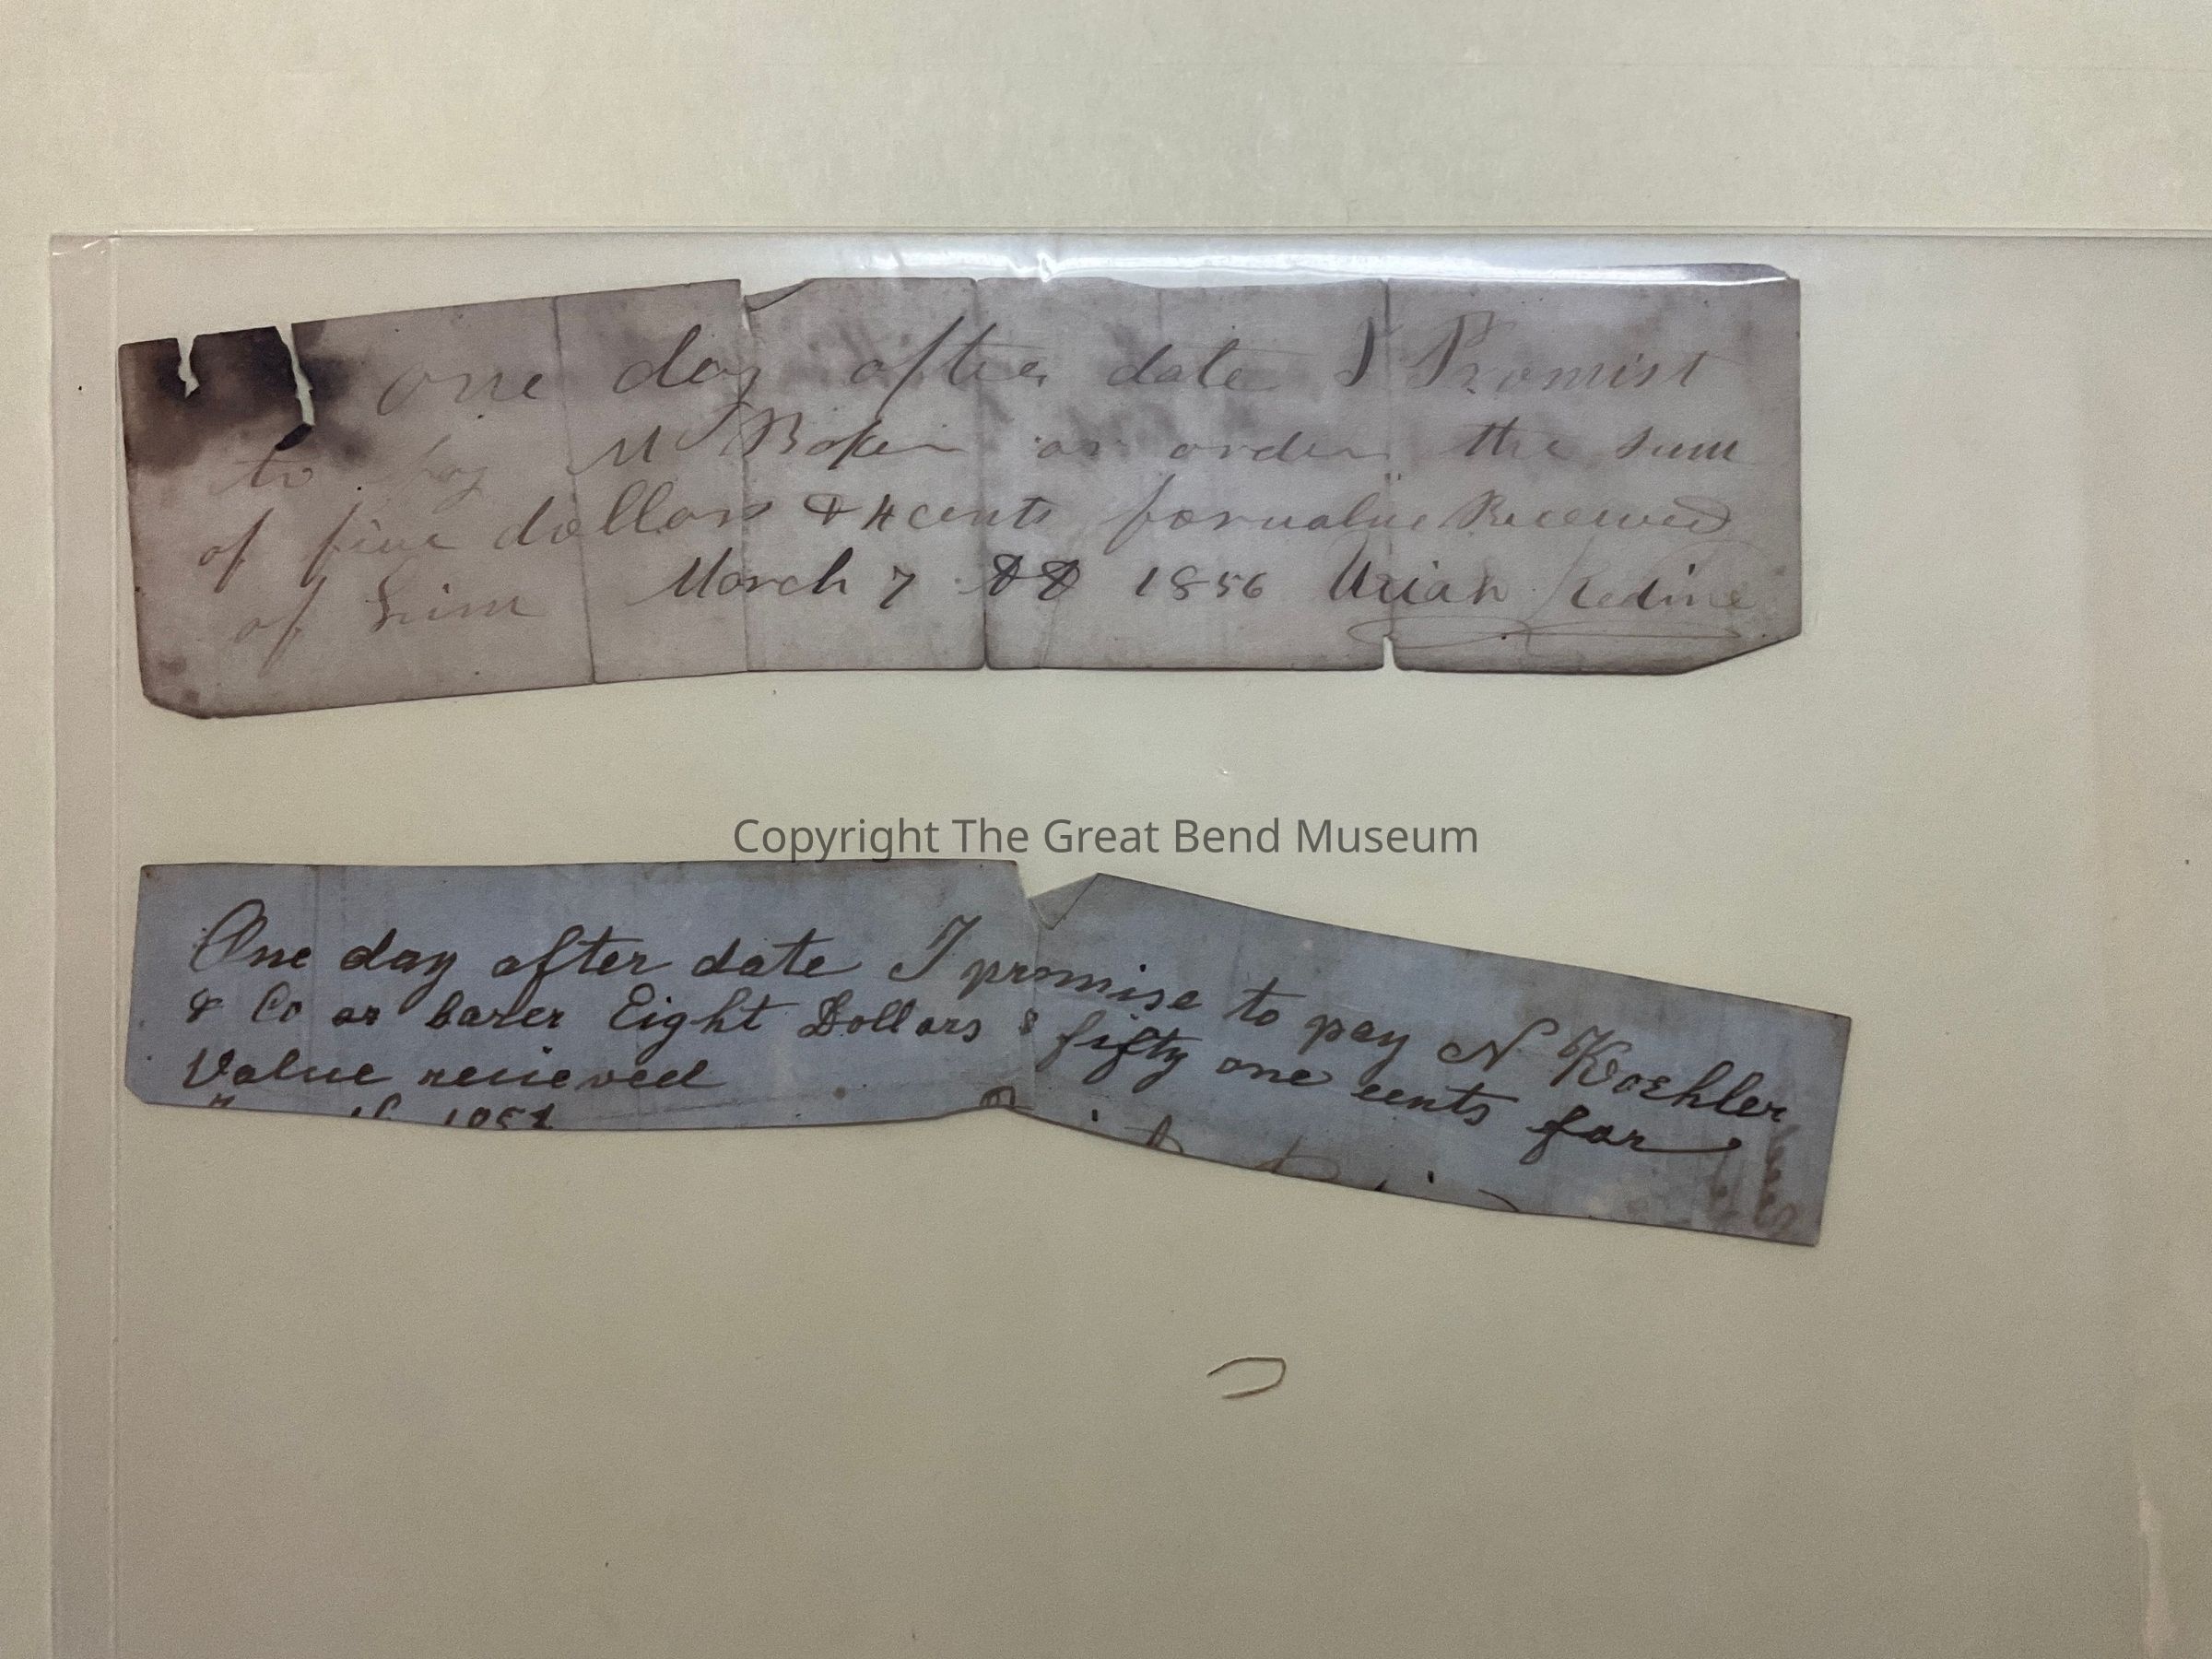 one day after date I Promist
to pay M Baker or order the sum
of five dollars & 4 cents for value Received
of him March 7 1856 Uriah
Copyright The Great Bend Museum
One day after date I promise to pay N Koehler
& Co or barer Eight Dollars & fifty one cents for
Value recieved